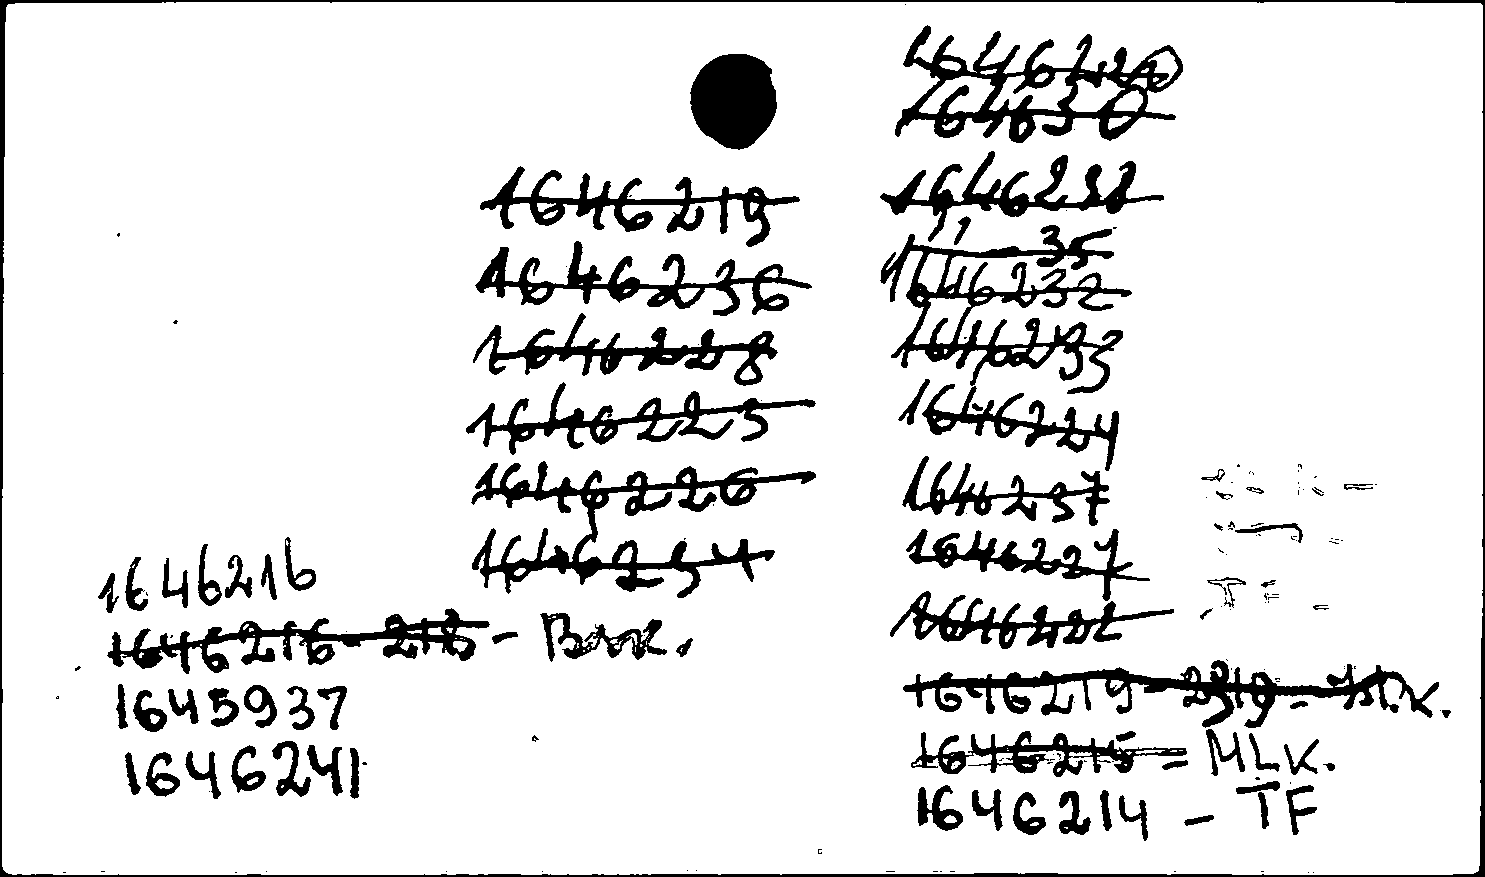 1646220
164630
1646238
" - 35
1646232
1646233
1646224
1646237
1646227
1646222
1646219 - 239 - MLK.
1646215 = MLK.
1646214 - TF
1646219
1646236
1646228
1646225
1646226
1646234
1646216
1646216 - 218 -
1645937
1646241